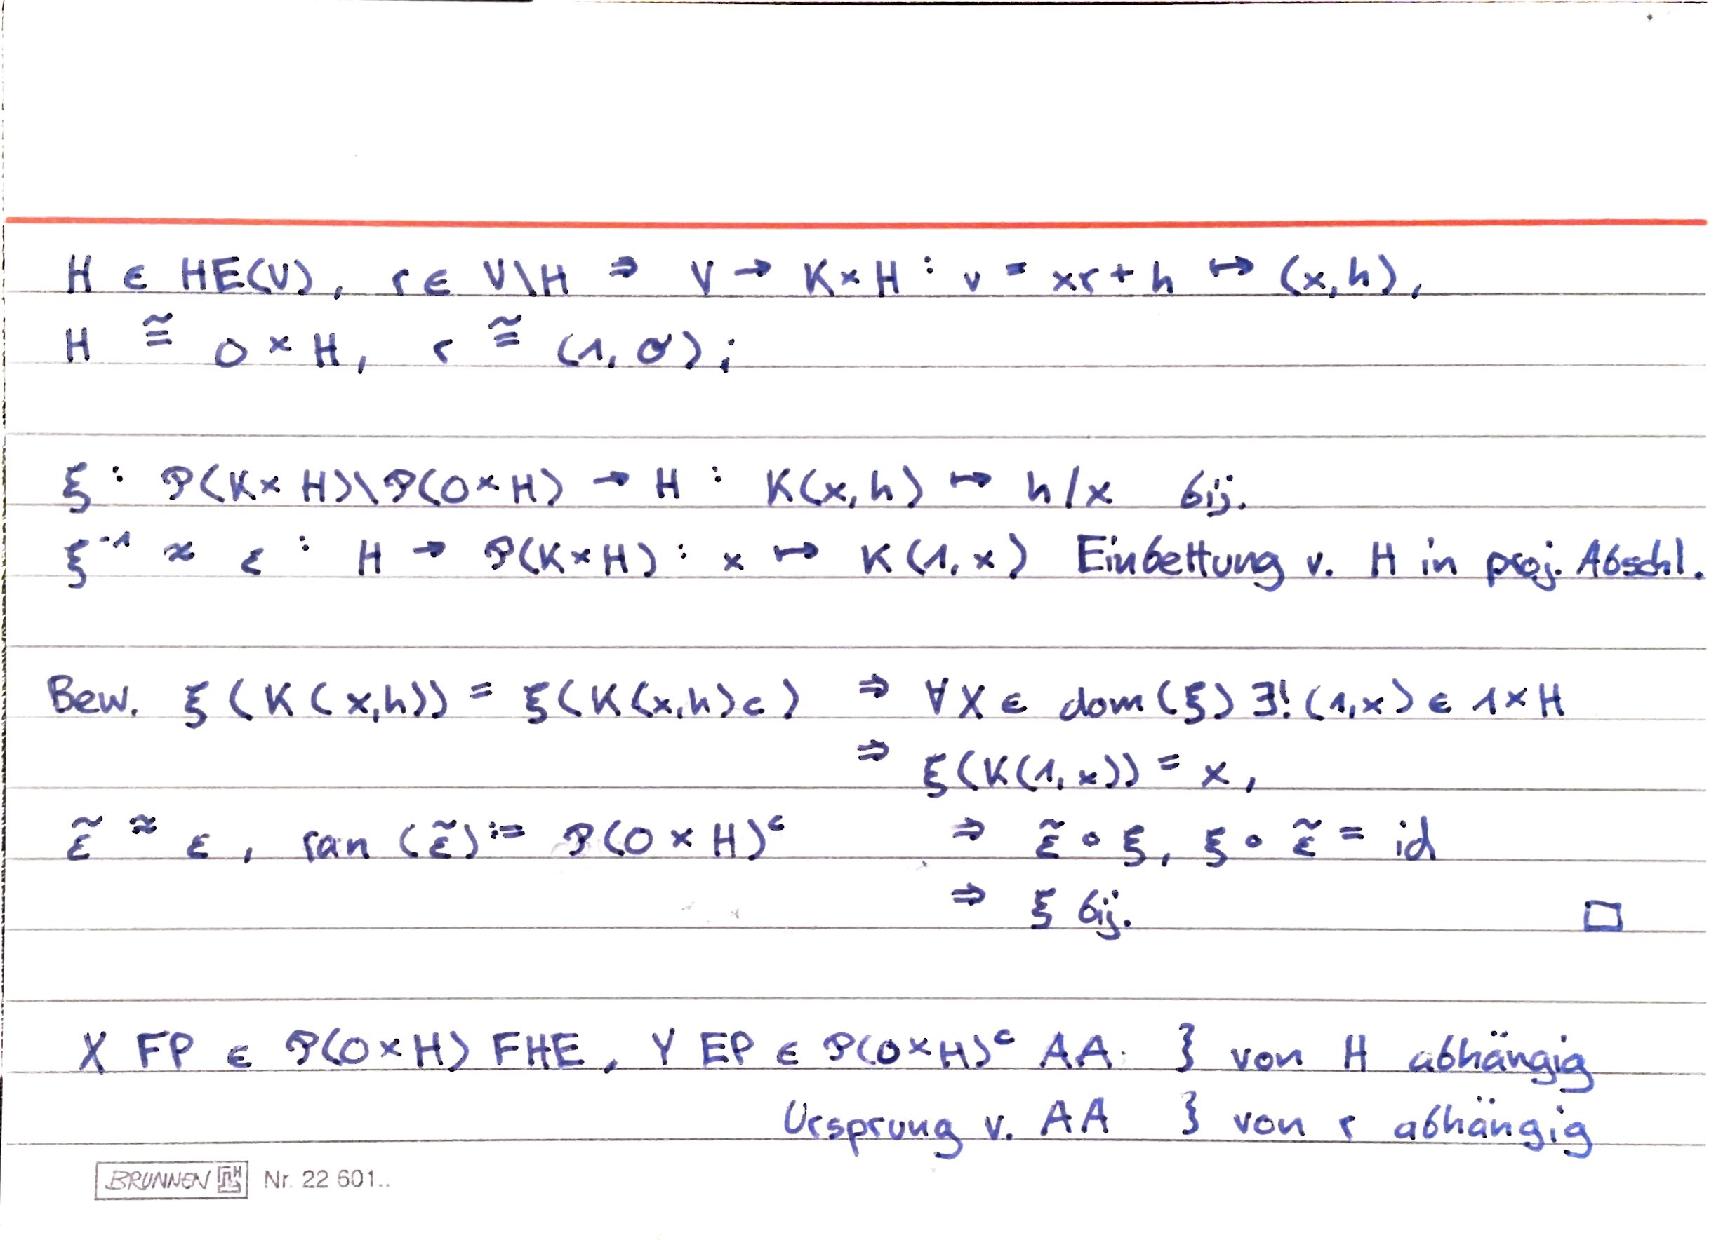 H ∈ HE(V), r ∈ V\H ⇒ V → K×H : v = xr + h ↦ (x,h),
H ≅ 0×H, r ≅ (1, σ);
ξ : P(K×H)\P(0×H) → H : K(x,h) ↦ h/x bij.
ξ⁻¹ ≈ ε : H → P(K×H) : x ↦ K(1,x) Einbettung v. H in proj. Abschl.
Bew. ξ(K(x,h)) = ξ(K(x,h)c) ⇒ ∀X ∈ dom(ξ) ∃!(1,x) ∈ 1×H
⇒ ξ(K(1,x)) = x,
ε̃ ≈ ε, ran(ε̃) := P(0×H)ᶜ ⇒ ε̃∘ξ, ξ∘ε̃ = id
⇒ ξ bij. □
X FP ∈ P(0×H) FHE, Y EP ∈ P(0×H)ᶜ AA } von H abhängig
Ursprung v. AA } von r abhängig
BRUNNEN Nr. 22 601..